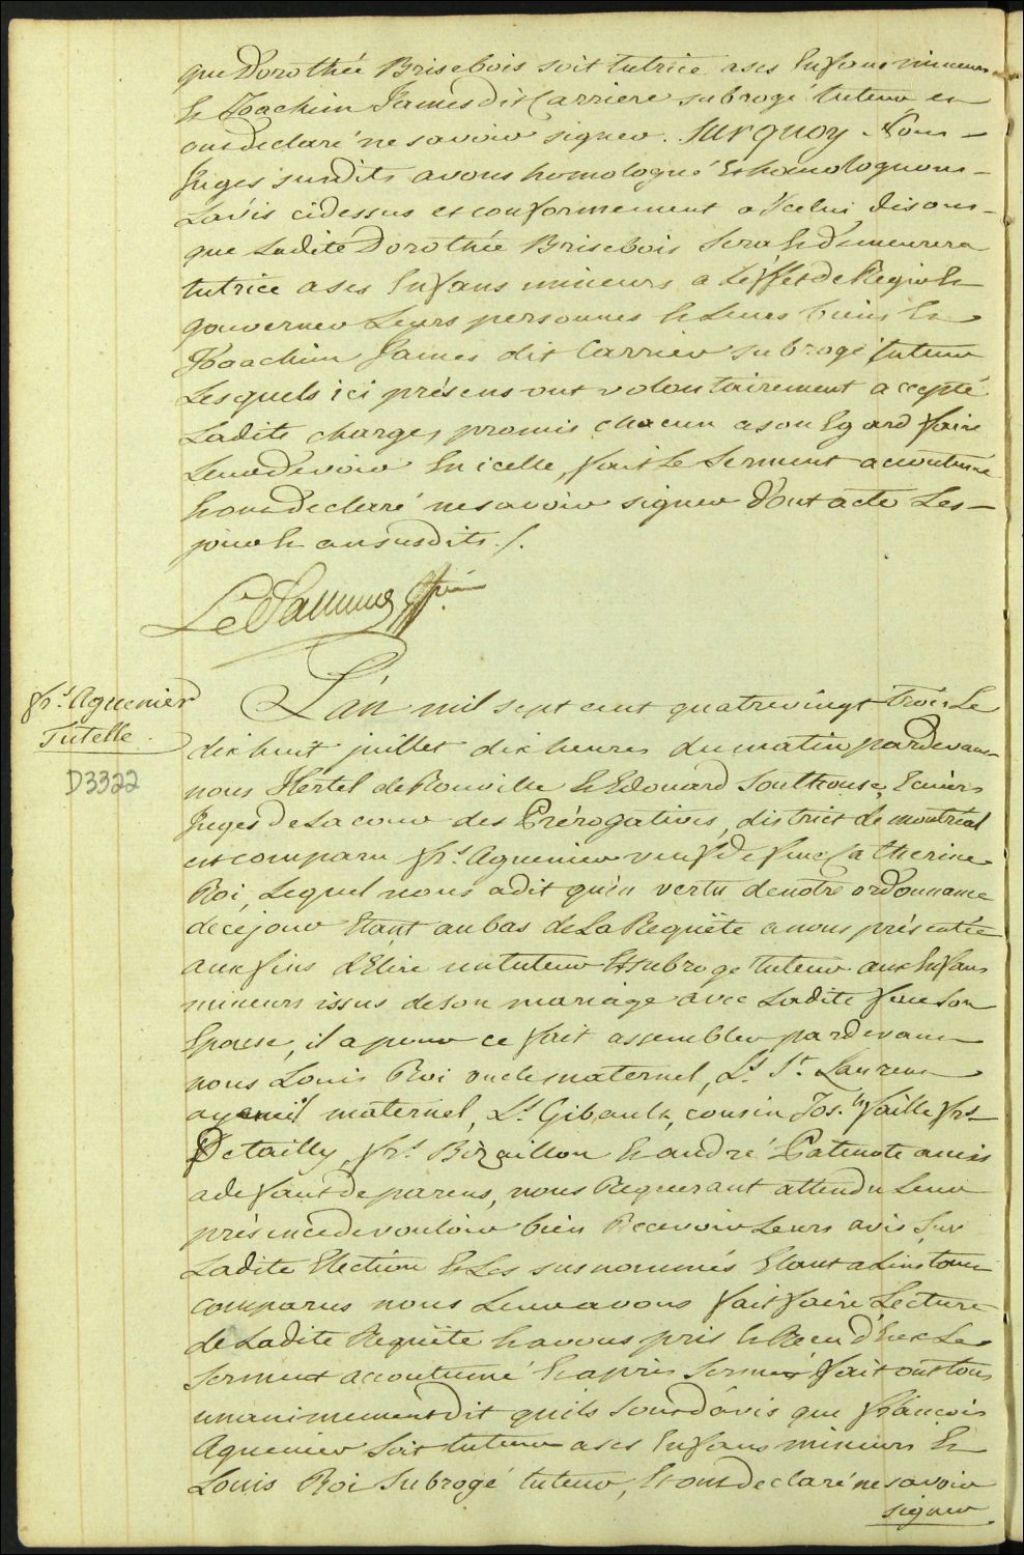 que Dorothée Brisebois soit tutrice a ses Enfans mineurs
Et Joachim James dit Carriere subrogé tuteur et
ont declaré ne savoir signer. Surquoy Nous
Juges susdits avons homologué Et homologuons
Lavis cidessus et conformement a Icelui disons
que Ladite Dorothée Brisebois sera Et demeurera
tutrice a ses Enfans mineurs a Leffet de Regir Et
gouverner Leurs personnes Et Leurs biens Et
Joachim James dit Carrier subrogé tuteur
Lesquels ici présens ont volontairement accepté
Ladite charge, promis chacun a son Egard faire
Leur devoir En icelle, fait Le serment accoutumé
Et ont declaré ne savoir signer Dont acte Les
jour Et an susdits ./.
fr.s Aguenier
Tutelle.
D3322
L'an mil sept cent quatrevingt trois Le
dix huit juillet dix heures du matin pardevant
nous Hertel de Rouville Et Edouard Southouse, Ecuiers
Juges de La cour des Prérogatives, district de montréal
est comparu fr.s Aguenier veuf de feue Catherine
Roi, Lequel nous a dit qu'en vertu de notre ordonnance
de ce jour Etant au bas de La Requête a nous présentée
aux fins d'Elire un tuteur Et subrogé tuteur aux Enfans
mineurs issus de son mariage avec Ladite feue son
Epouse, il a pour ce fait assembler pardevant
nous Louis Roi oncle maternel, L.s S.t Laurent
ayeuil maternel, L.s Gibault, cousin Jos. faille fr.s
Detailly, fr.s Bizaillon Et andré Patenote amis
a defaut de parens, nous Requerant attendu Leur
présence de vouloir bien Recevoir Leurs avis sur
Ladite Election Et Les susnommés Etant a Linstant
comparus nous Leur avons fait faire Lecture
de Ladite Requête Et avons pris Et Recu d'Eux Le
serment accoutumé Et après serment fait ont tous
unanimement dit quils sont d'avis que françois
Aguenier soit tuteur a ses Enfans mineurs Et
Louis Roi subrogé tuteur, Et ont declaré ne savoir
signer.